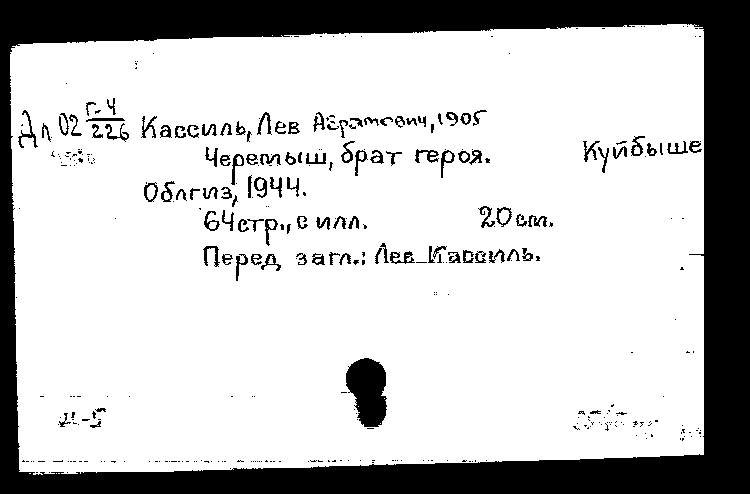 Дл 02 Г-4/226 Кассиль, Лев Абрамович, 1905
Черемыш, брат героя. Куйбыше
Облгиз, 1944.
64стр., с илл. 20см.
Перед загл.: Лев Кассиль.
М-5